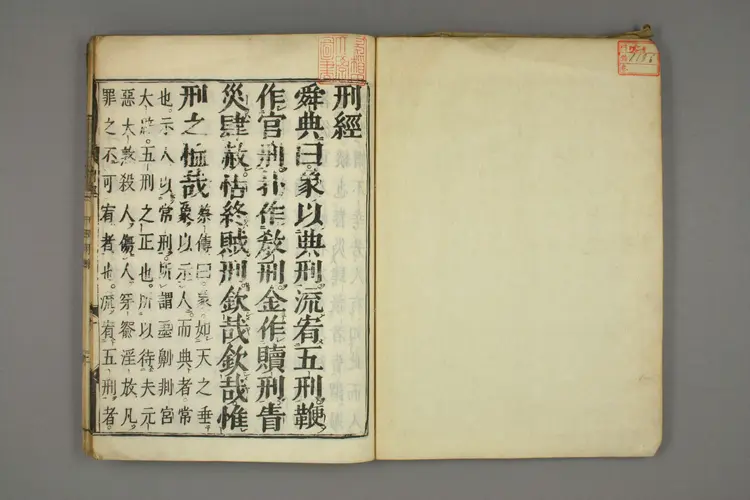 刑經
舜典曰象以典刑流宥五刑鞭
作官刑扑作教刑金作贖刑眚
災肆赦怙終賊刑欽哉欽哉惟
刑之恤哉蔡傳曰象如天之垂
象以示人而典者常
也示人以常刑所謂墨劓剕宮
大辟五刑之正也所以待夫元
惡大憝殺人傷人穿窬淫放凡
罪之不可宥者也流宥五刑者